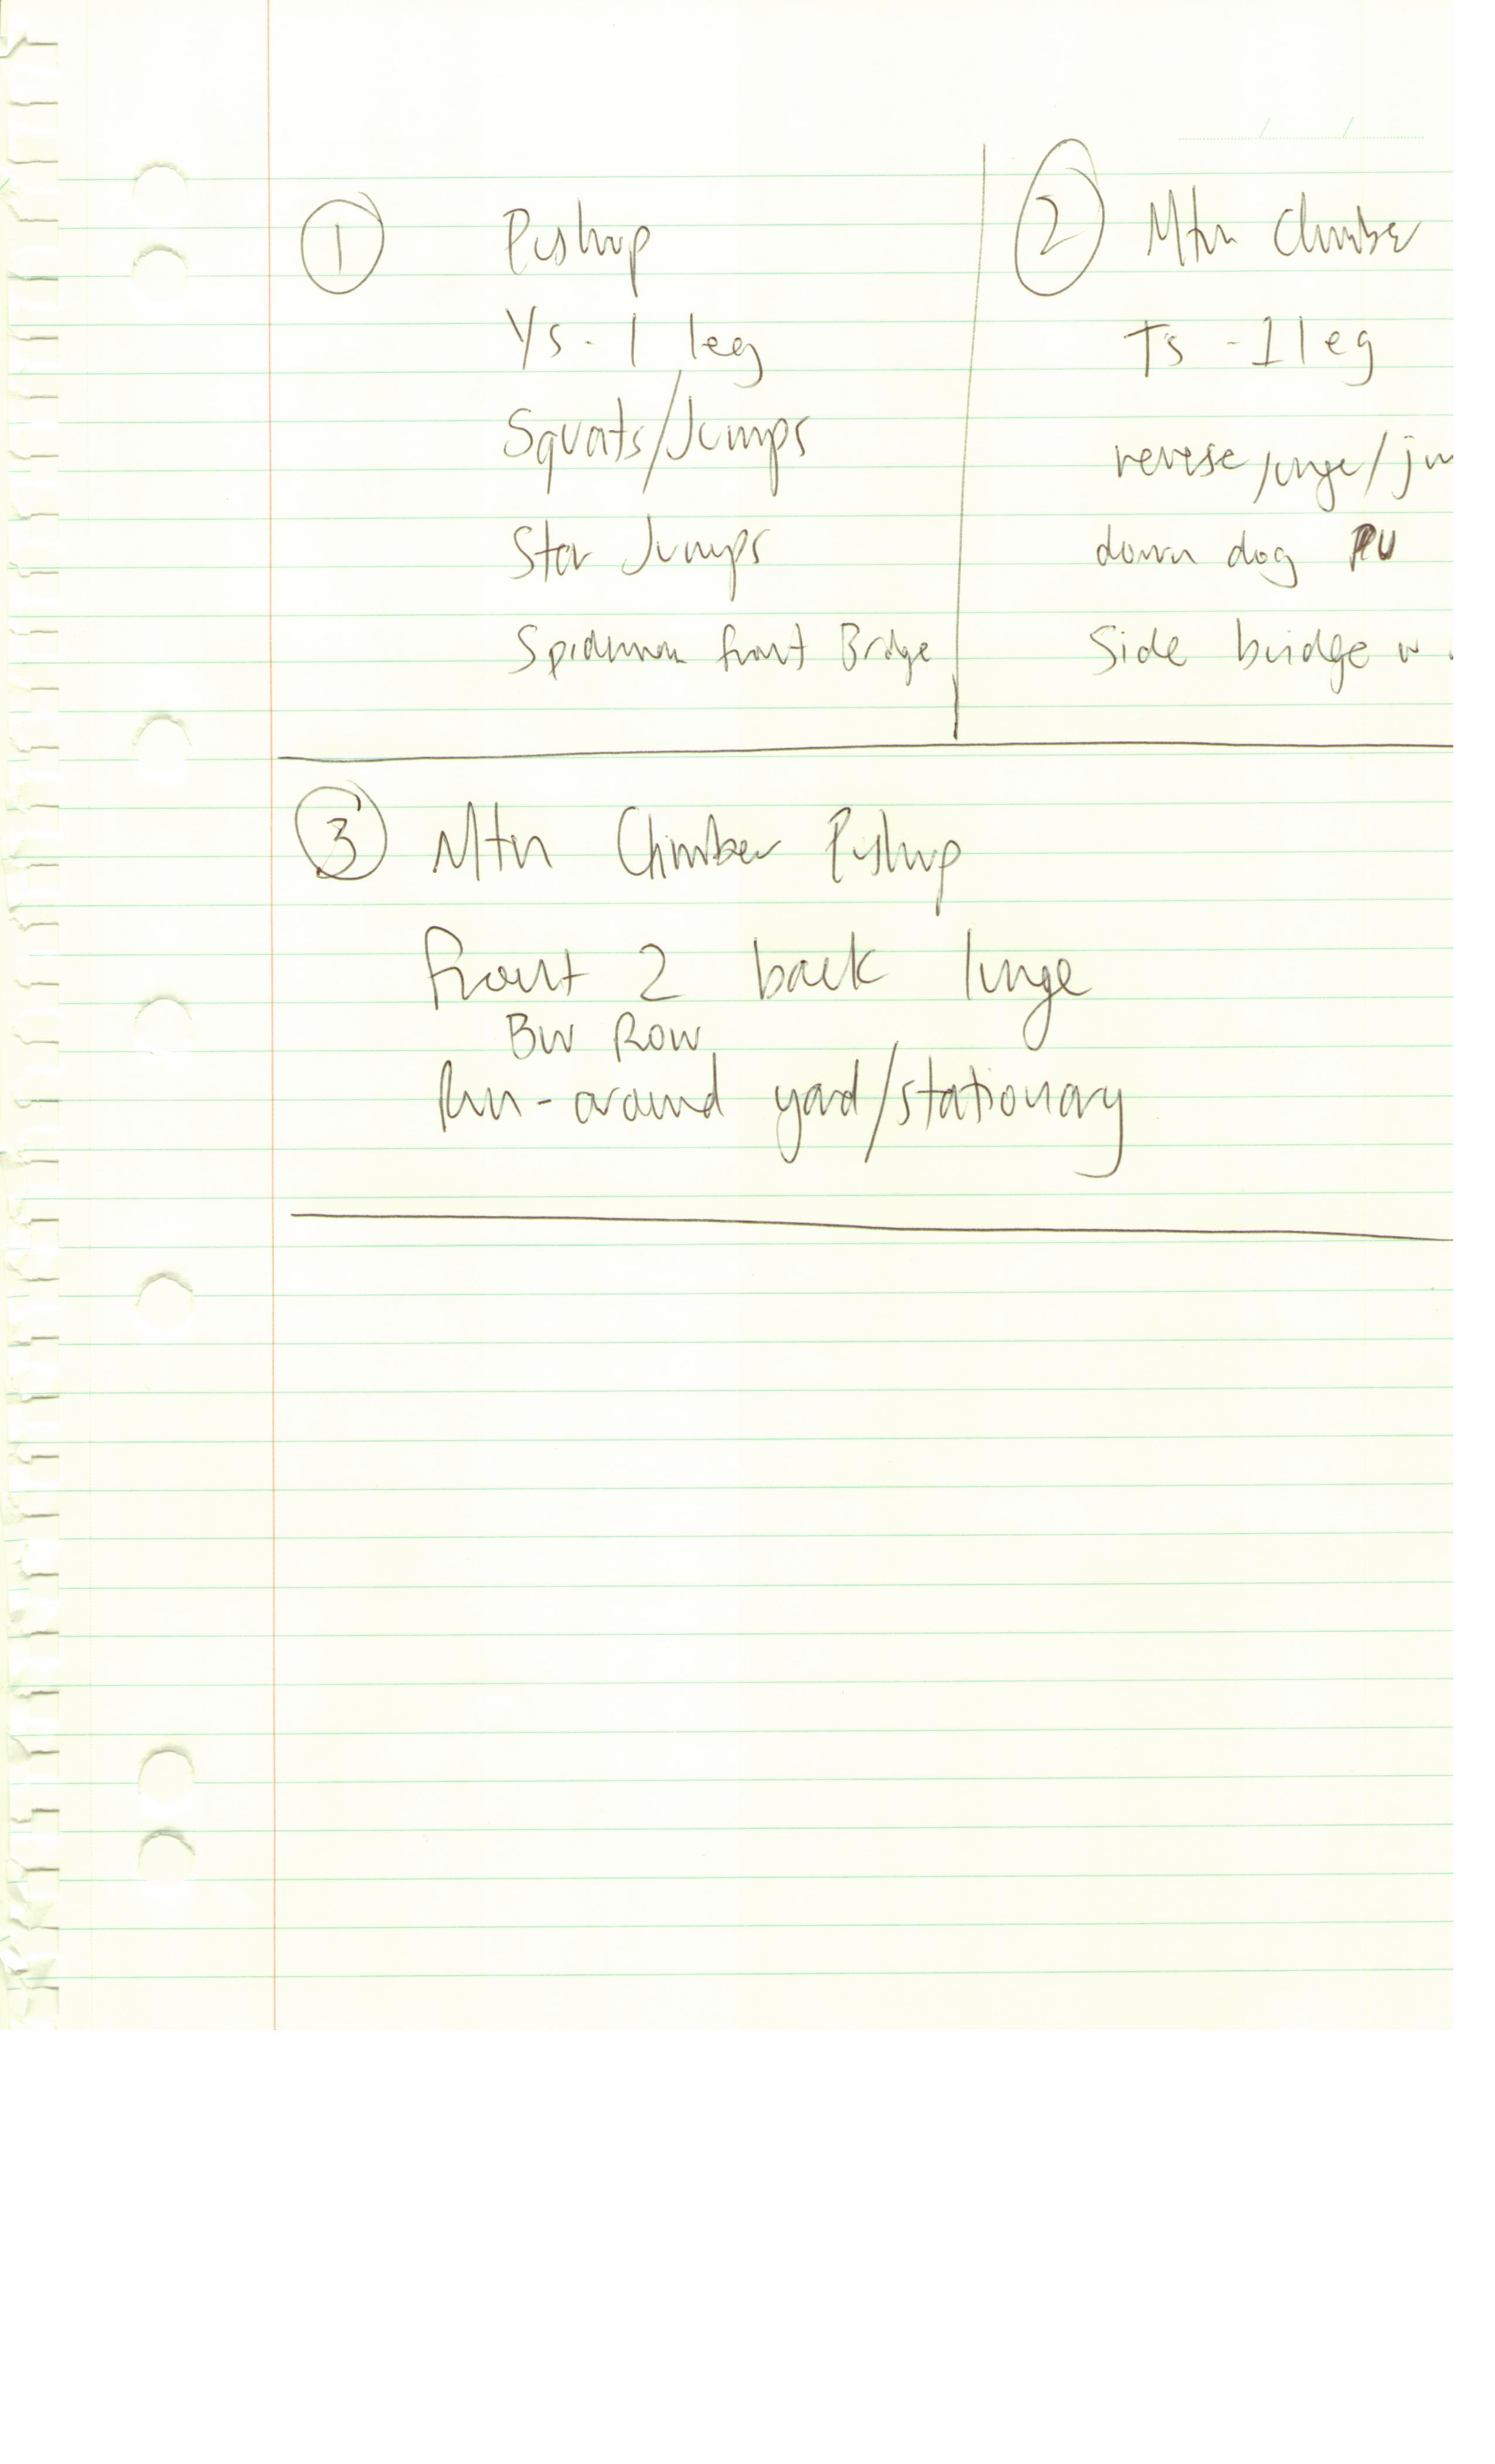 1
Pushup
Ys - 1 leg
Squats/Jumps
Star Jumps
Spiderman front Bridge
2
Mtn Climber
Ts - 1 leg
reverse lunge/ju
down dog PU
Side bridge w
3
Mtn Climber Pushup
front 2 back lunge
BW Row
Run-around yard/stationary